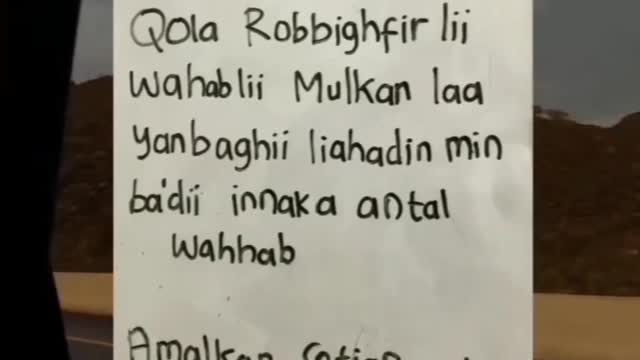 Qola Robbighfir lii
wahablii Mulkan laa
yanbaghii liahadin min
ba'dii innaka antal
wahhab
Amalkan